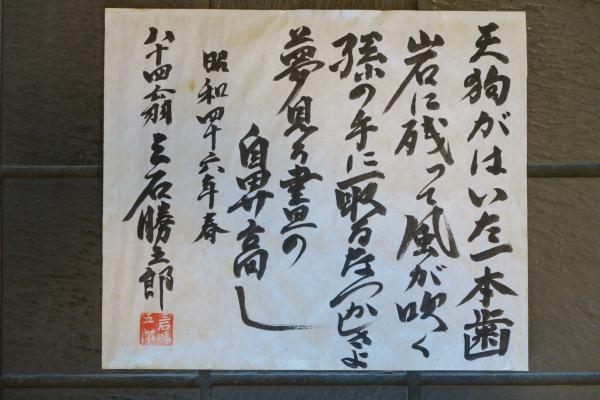 天狗がはいた一本歯
岩に残って風が吹く
孫の手に取るなつかしさよ
夢見る の
鼻高し
昭和四十六年春
八十四翁 三石勝五郎
三石勝
五郎